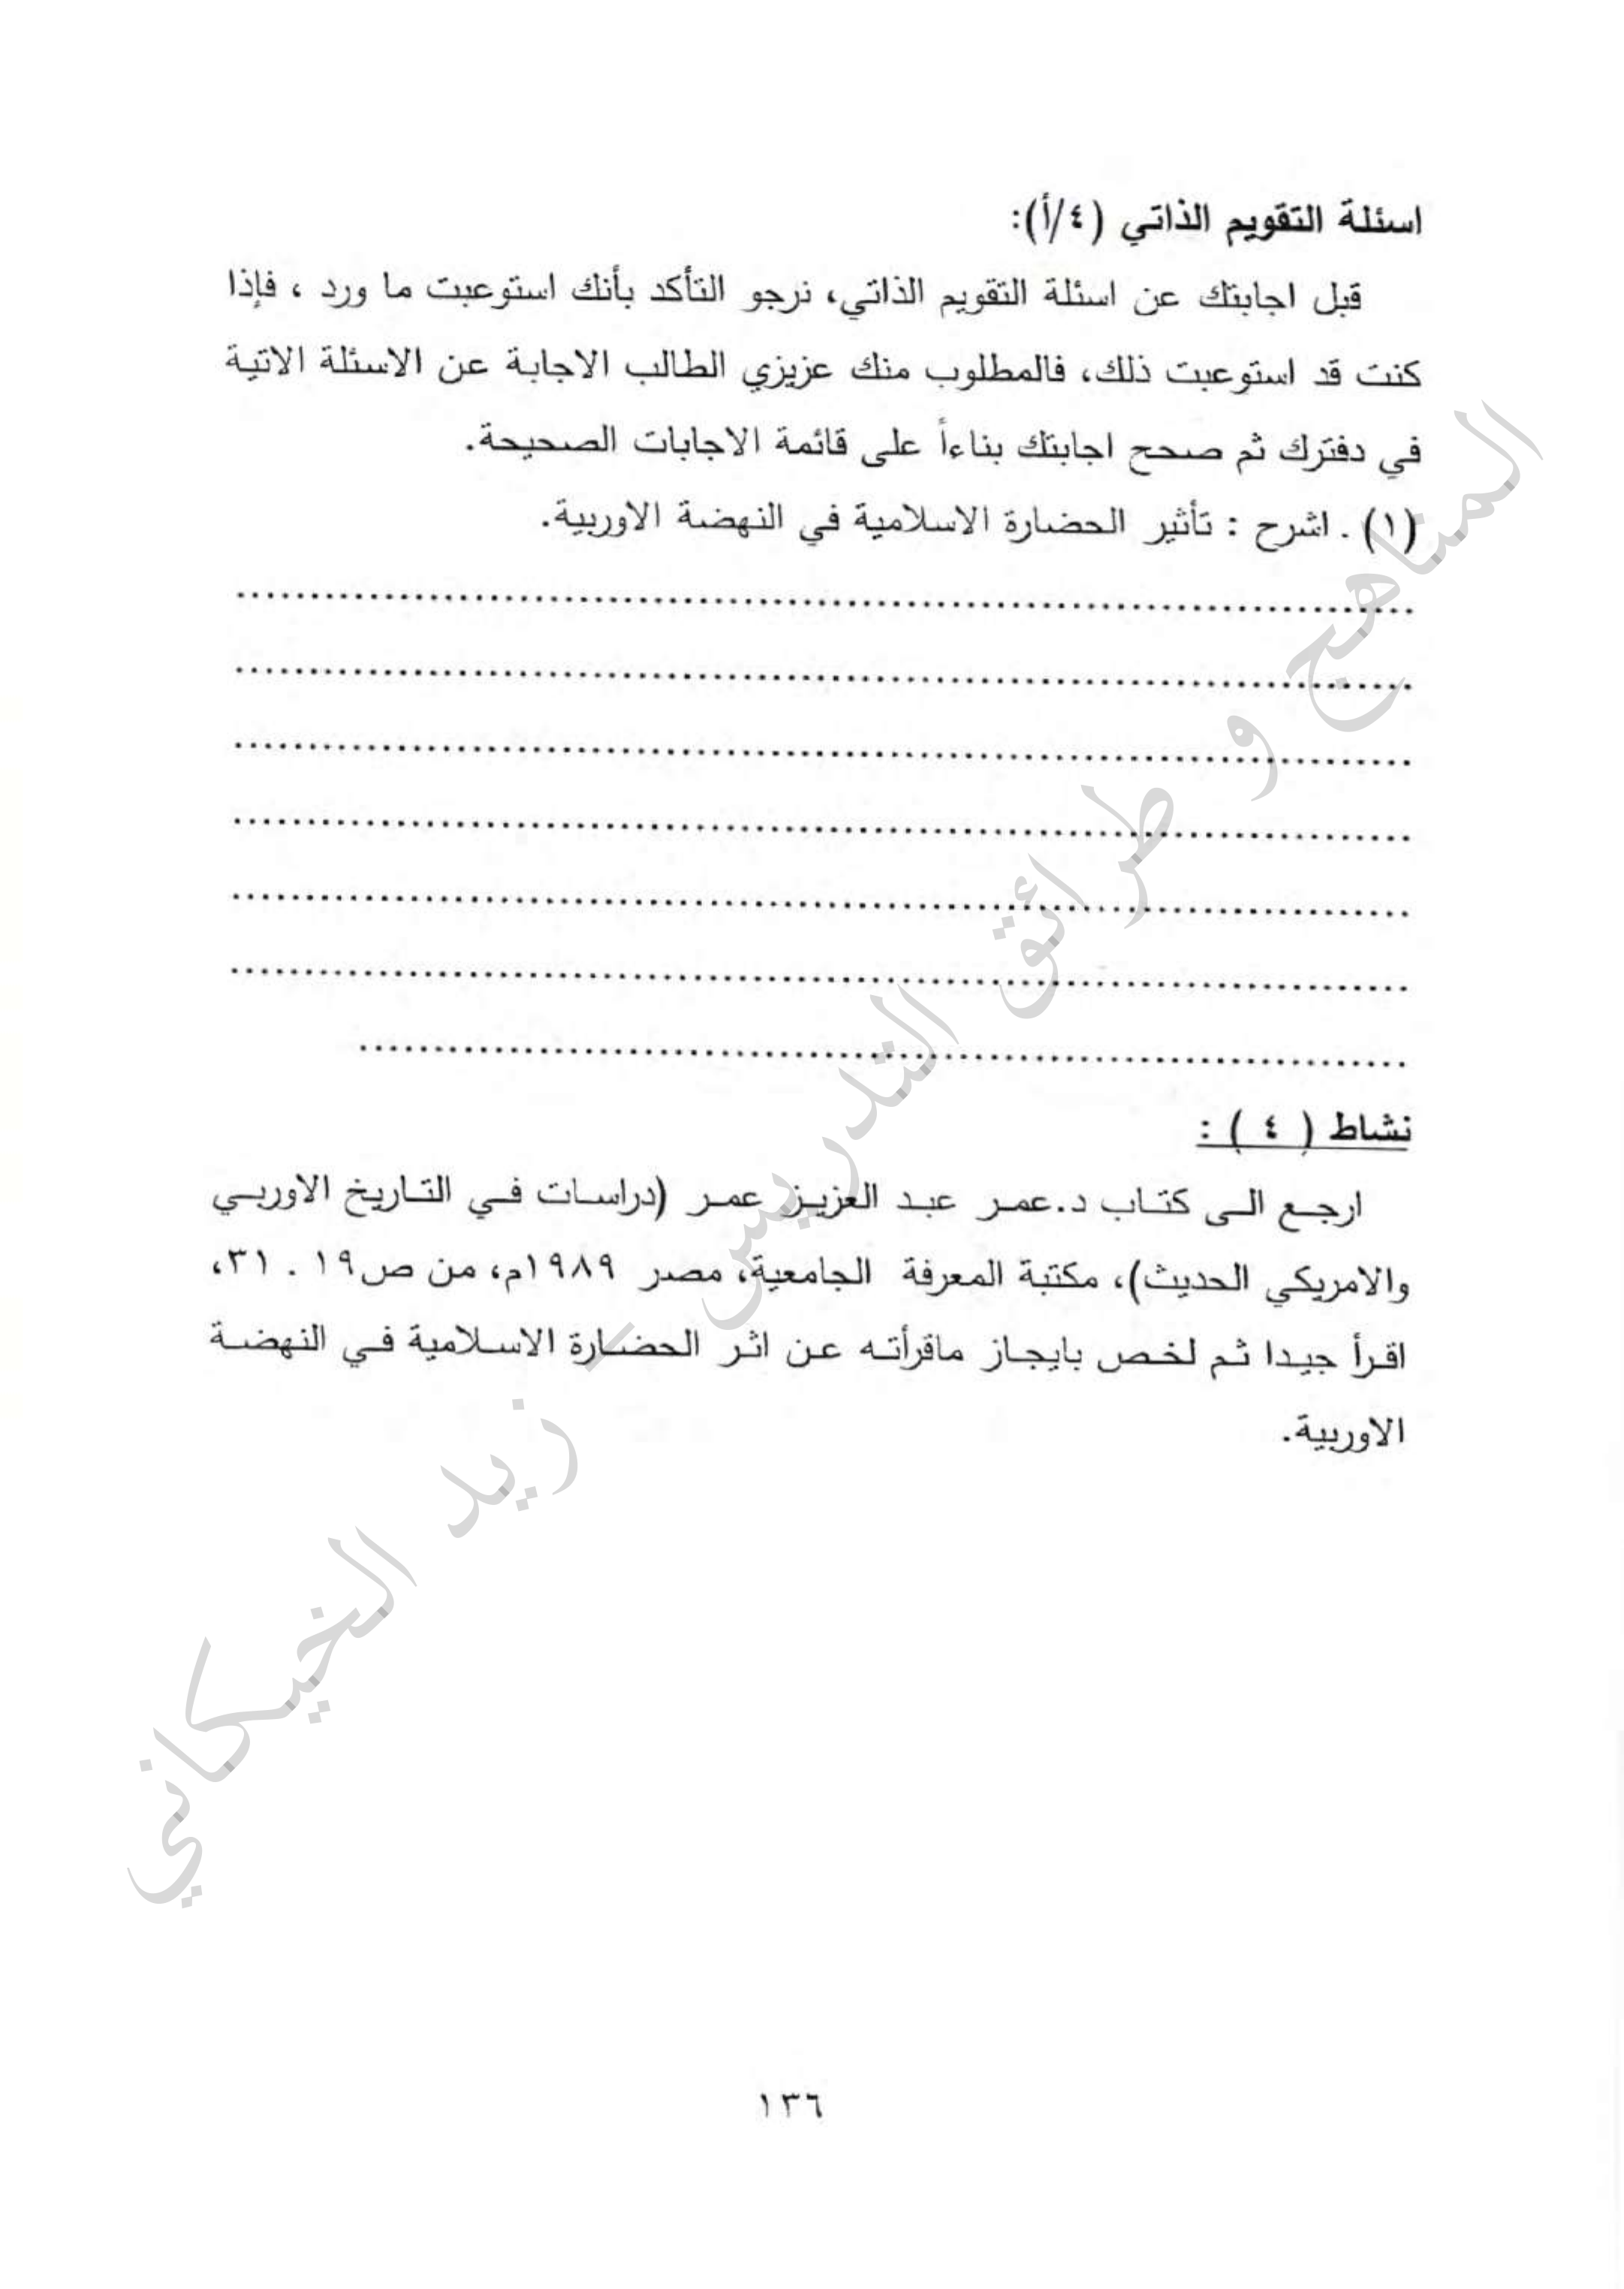 اسئلة التقويم الذاتي (٤/أ):
قبل اجابتك عن اسئلة التقويم الذاتي، نرجو التأكد بأنك استوعبت ما ورد ، فإذا
كنت قد استوعبت ذلك، فالمطلوب منك عزيزي الطالب الاجابة عن الاسئلة الاتية
في دفترك ثم صحح اجابتك بناءاً على قائمة الاجابات الصحيحة.
(١) . اشرح : تأثير الحضارة الاسلامية في النهضة الاوربية.
................................................................................
................................................................................
................................................................................
................................................................................
................................................................................
................................................................................
.......................................................................
نشاط ( ٤ ) :
ارجع الى كتاب د.عمر عبد العزيز عمر (دراسات في التاريخ الاوربي
والامريكي الحديث)، مكتبة المعرفة الجامعية، مصر ١٩٨٩م، من ص١٩ . ٣١،
اقرأ جيدا ثم لخص بايجاز ماقرأته عن اثر الحضارة الاسلامية في النهضة
الاوربية.
المناهج و طرائق التدريس - زيد الخيكاني
١٣٦